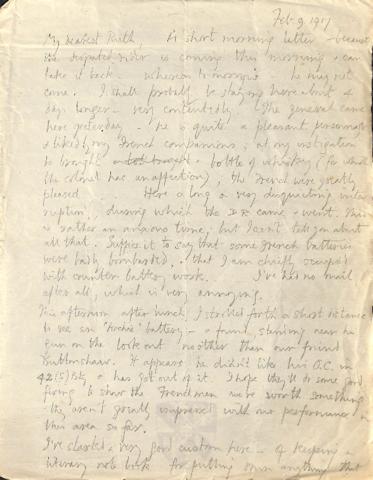 Feb 9, 1917
My dearest Ruth, A short morning letter - because
the despatch rider is coming this morning, & can
take it back - whereas tomorrow he may not
come. I shall probably be staying here about 4
days longer - very contentedly. The general came
here yesterday - he is quite a pleasant personage
& liked my French companions; at my instigation
he brought a bottle of whiskey (for which
the colonel has an affection), the French were greatly
pleased. Here a long & very disquieting inter-
ruption, during which the DR came & went. This
is rather an anxious time, but I can't tell you about
all that. Suffice it to say that some French batteries
were badly bombarded, & that I am chiefly occupied
with counter battery work. I've had no mail
after all, which is very annoying.
This afternoon after lunch, I strolled forth a short distance
to see an 'Archie' battery - & found standing near the
gun on the look out no other than our friend
Buttonshaw. It appears he didn't like his O.C. in
42(S) Bty, & has got out of it. I hope they'll do some good
firing to show the Frenchmen we're worth something
- they aren't greatly impressed with our performance in
this area so far.
I've started a very good custom here - of keeping a
literary note book for putting down anything that